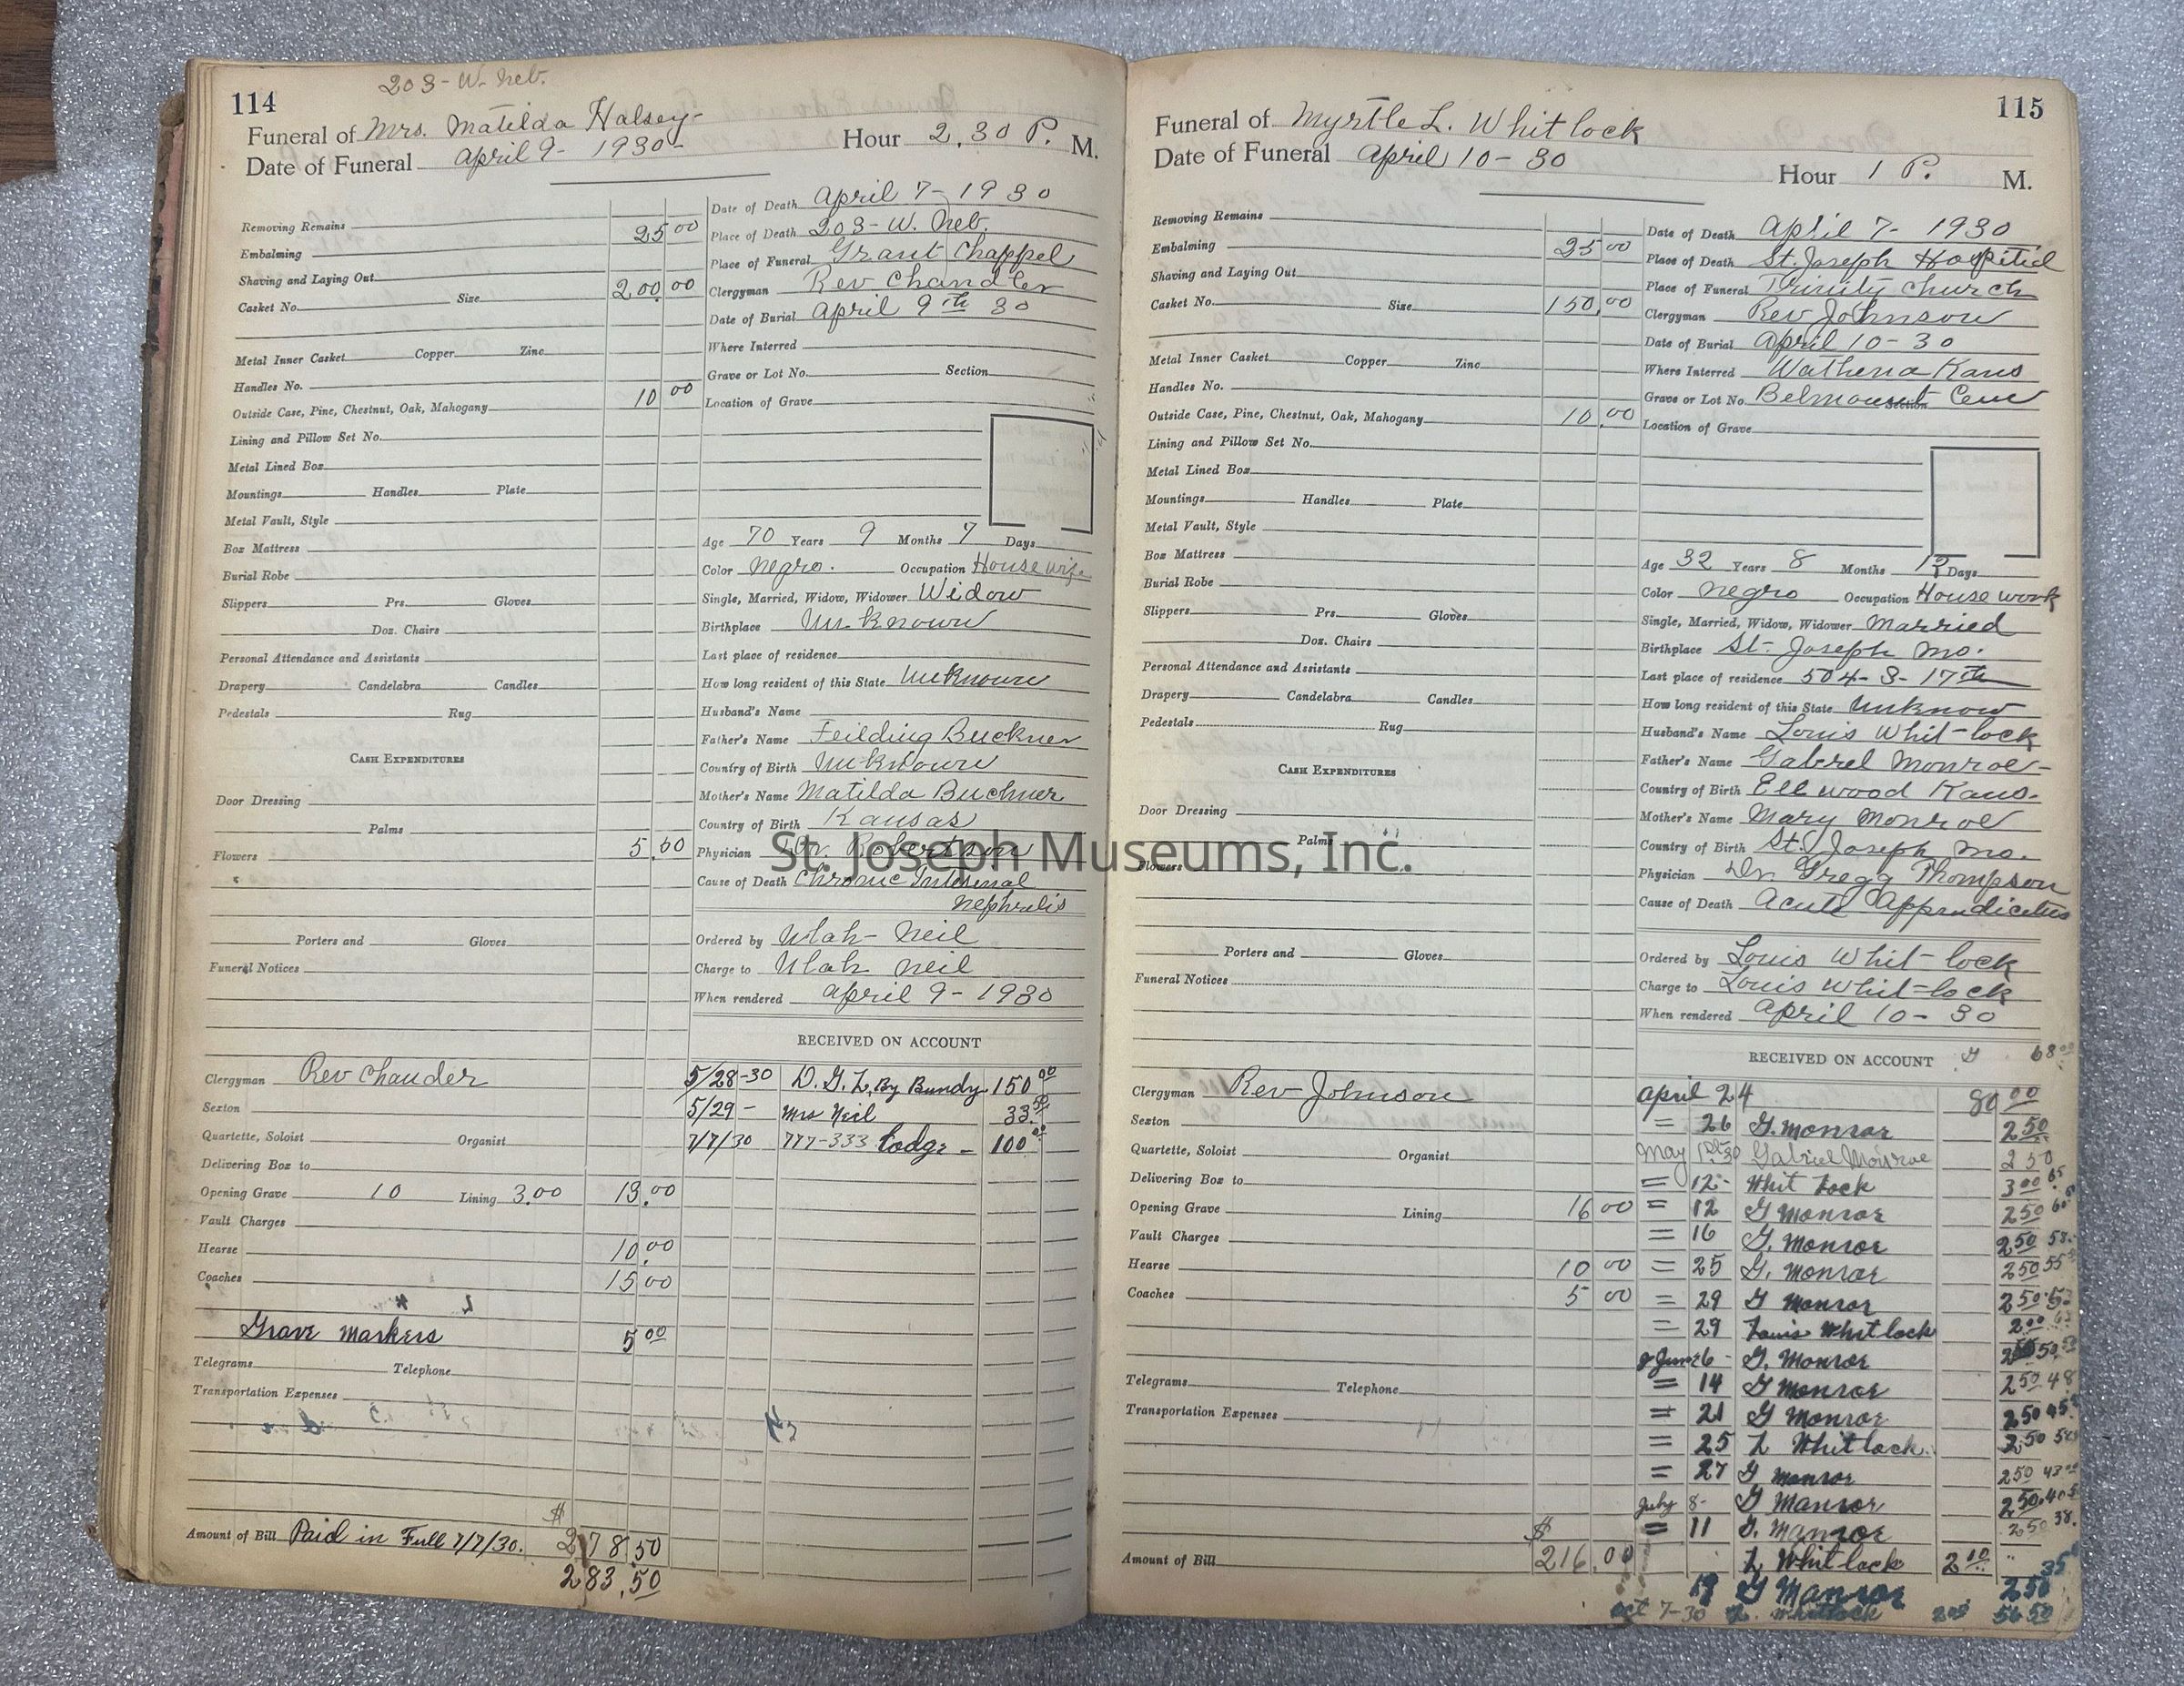 203 - W. Neb.
114
Funeral of Mrs. Matilda Halsey-
Hour 2,30 P. M.
Date of Funeral April 9 - 1930-
Removing Remains
Embalming 25 00
Shaving and Laying Out
Casket No. Size 200 00
Metal Inner Casket Copper Zinc
Handles No.
Outside Case, Pine, Chestnut, Oak, Mahogany 10 00
Lining and Pillow Set No.
Metal Lined Box
Mountings Handles Plate
Metal Vault, Style
Box Mattress
Burial Robe
Slippers Prs. Gloves
Doz. Chairs
Personal Attendance and Assistants
Drapery Candelabra Candles
Pedestals Rug
CASH EXPENDITURES
Door Dressing
Palms
Flowers 5.00
Porters and Gloves
Funeral Notices
Clergyman Rev Chauder
Sexton
Quartette, Soloist Organist
Delivering Box to
Opening Grave 10 Lining 3.00 13.00
Vault Charges
Hearse 10.00
Coaches 15 00
Grave markers 5 00
Telegrams Telephone
Transportation Expenses
$
Amount of Bill Paid in Full 7/7/30. 278.50
283.50
Date of Death April 7 - 1930
Place of Death 203 - W. Neb.
Place of Funeral Grant Chappel
Clergyman Rev Chandler
Date of Burial April 9th 30
Where Interred
Grave or Lot No. Section
Location of Grave
Age 70 Years 9 Months 7 Days
Color Negro. Occupation House wife
Single, Married, Widow, Widower Widow
Birthplace Unknown
Last place of residence
How long resident of this State Unknown
Husband's Name
Father's Name Feilding Buckner
Country of Birth Unknown
Mother's Name Matilda Buchner
Country of Birth Kansas
Physician Dr. Robertson
Cause of Death Chronic Intesenal
Nephretis
Ordered by Ulah - Neil
Charge to Ulah Neil
When rendered April 9 - 1930
RECEIVED ON ACCOUNT
5/28-30 D. G. L, By Bundy 150 00
5/29 - Mrs Neil 33 50
7/7/30 777-333 Lodge - 100 00
115
Funeral of Myrtle L. Whitlock
Date of Funeral April 10 - 30
Hour 1 P. M.
Removing Remains
Embalming 25 00
Shaving and Laying Out
Casket No. Size 150.00
Metal Inner Casket Copper Zinc
Handles No.
Outside Case, Pine, Chestnut, Oak, Mahogany 10.00
Lining and Pillow Set No.
Metal Lined Box
Mountings Handles Plate
Metal Vault, Style
Box Mattress
Burial Robe
Slippers Prs. Gloves
Doz. Chairs
Personal Attendance and Assistants
Drapery Candelabra Candles
Pedestals Rug
CASH EXPENDITURES
Door Dressing
Palms
Flowers
Porters and Gloves
Funeral Notices
Clergyman Rev Johnson
Sexton
Quartette, Soloist Organist
Delivering Box to
Opening Grave Lining 16 00
Vault Charges
Hearse 10 00
Coaches 5 00
Telegrams Telephone
Transportation Expenses
$
Amount of Bill 216.00
Date of Death April 7 - 1930
Place of Death St. Joseph Hospitiel
Place of Funeral Trinity Church
Clergyman Rev Johnson
Date of Burial April 10 - 30
Where Interred Wathena Kans
Grave or Lot No. Section Belmount Cem
Location of Grave
Age 32 Years 8 Months Days
Color Negro Occupation House work
Single, Married, Widow, Widower Married
Birthplace St- Joseph Mo.
Last place of residence 504 - S - 17th
How long resident of this State Unknow
Husband's Name Louis Whit-lock
Father's Name Gabrel Monroe-
Country of Birth Ellwood Kans.
Mother's Name Mary Monroe
Country of Birth St. Joseph Mo.
Physician Dr. Gregg Thompson
Cause of Death Acute Appendicetus
Ordered by Louis Whit-lock
Charge to Louis Whit-lock
When rendered April 10 - 30
RECEIVED ON ACCOUNT 68 00
April 24 80 00
= 26 G. Monroe 2 50
May 1st 30 Gabriel Monroe 2 50
= 12 - Whit Lock 3 00 65
= 12 G Monroe 2 50
= 16 G. Monroe 2 50 58
= 25 G. Monroe 2 50 55
= 29 G Monroe 2 50
= 29 Louis Whitlock 2 00
June 6 - G. Monroe 50
= 14 G Monroe 2 50 48
= 21 G Monroe 2 50 45
= 25 L Whitlock. 2.50
= 27 G Monroe 2 50 43
July 8 - G Manroe 2 50 40
= 11 G. Manroe 2 50 38.
L Whitlock 2 00 35
19 G Manroe 2 50
Oct 7-30 L. Whitlock
St. Joseph Museums, Inc.